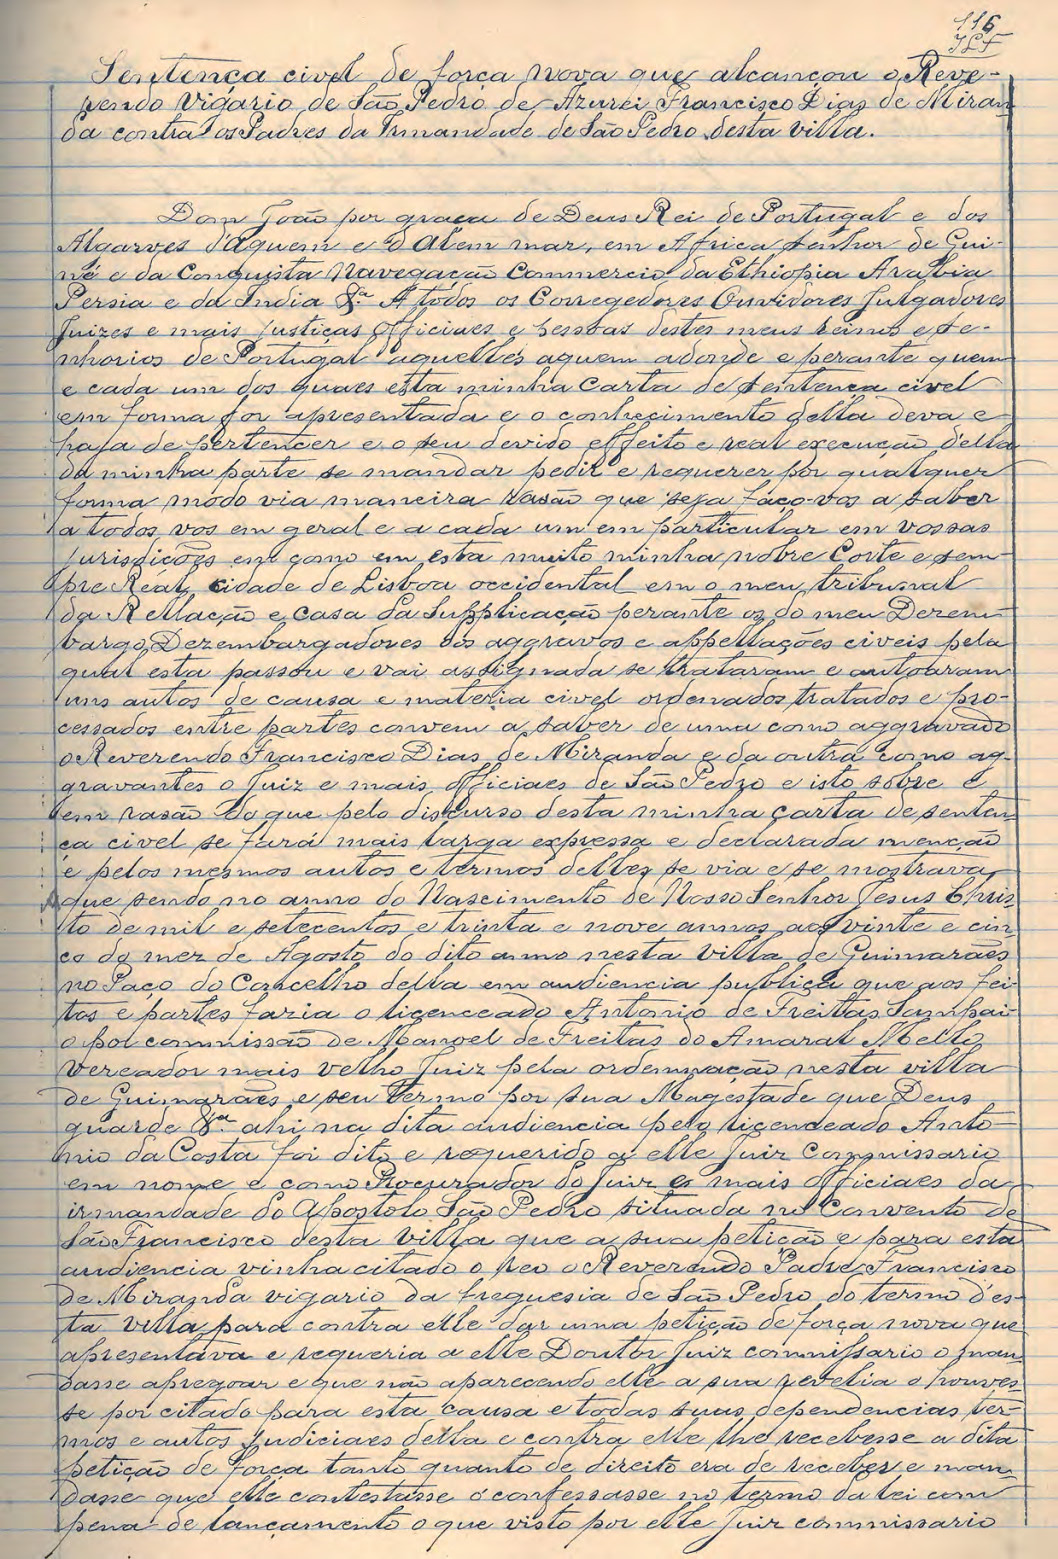 116
JLF
Sentença civel de força nova que alcançou o Reve-
rendo Vigario de São Pedro de Azurei Francisco Dias de Miran
da contra os Padres da Irmandade de São Pedro desta villa.
Dom João por graça de Deus Rei de Portugal e dos
Algarves d'aquem e d'Alem mar, em Africa senhor de Gui-
né e da Conquista Navegação Commercio da Ethiopia Arabia
Persia e da India &.ª A todos os Corregedores Ouvidores Julgadores
Juizes e mais justiças officiaes e pessoas destes meus reinos e se-
nhorios de Portugal aquelles aquem adonde e perante quem
e cada um dos quaes esta minha Carta de sentença civel
em forma for apresentada e o conhecimento della deva e
haja de pertencer e o seu devido effeito e real execução d'ella
da minha parte se mandar pedir e requerer por qualquer
forma modo via maneira rasão que seja faço-vos a saber
a todos vos em geral e a cada um em particular em vossas
jurisdições em como em esta muito minha nobre Corte e sem-
pre Real cidade de Lisboa occidental em o meu tribunal
da Rellação e casa da Supplicação perante os do meu Dezem-
bargo Dezembargadores dos aggravos e appellações civeis pela
qual esta passou e vai assignada se trataram e autoaram
uns autos de causa e materia civel ordenados tratados e pro-
cessados entre partes convem a saber de uma como aggravado
o Reverendo Francisco Dias de Miranda e da outra como ag-
gravantes o Juiz e mais officiaes de São Pedro e isto sobre e
em rasão do que pelo discurso desta minha carta de senten-
ça civel se fará mais larga expressa e declarada menção
e pelos mesmos autos e termos delles se via e se mostrava
que sendo no anno do Nascimento de Nosso Senhor Jesus Chris-
to de mil e setecentos e trinta e nove annos aos vinte e cin-
co do mez de Agosto do dito anno nesta villa de Guimarães
no Paço do Concelho della em audiencia publica que aos fei-
tos e partes fazia o licenceado Antonio de Freitas Sampai-
o por commissão de Manoel de Freitas do Amaral Mello
Vereador mais velho Juiz pela ordennação nesta villa
de Guimarães e seu termo por sua Magestade que Deus
guarde &.ª ahi na dita audiencia pelo licenceado Anto-
nio da Costa foi dito e requerido a elle Juiz Commissario
em nome e como Procurador do Juiz e mais officiaes da
irmandade do Apostolo São Pedro situada no Convento de
São Francisco desta villa que a sua petição e para esta
audiencia vinha citado o reo o Reverendo Padre Francisco
de Miranda vigario da freguesia de São Pedro do termo d'es-
ta villa para contra elle dar uma petição de força nova que
apresentava e requeria a elle Doutor Juiz commissario o man-
dasse apregoar e que não aparecendo elle a sua revelia o houves-
se por citado para esta causa e todas suas dependencias ter-
mos e autos judiciaes della e contra elle lhe recebesse a dita
petição de força tanto quanto de direito era de receber e man-
dasse que elle contestasse o confessasse no termo da lei com
pena de lançamento o que visto por elle Juiz commissario